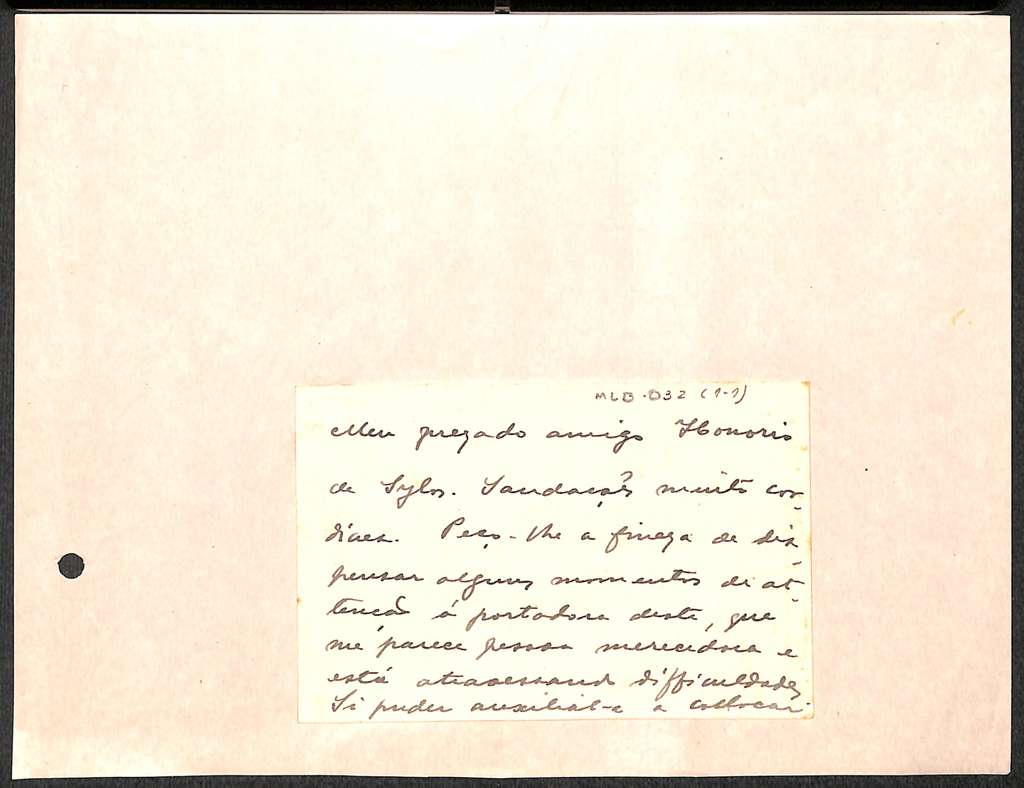 MLB-032 (1-1)
Meu prezado amigo Honorio
de Sylos. Saudações muito cor-
diaes. Peço-lhe a fineza de dis-
pensar alguns momentos de at-
tenção á portadora deste, que
me parece pessoa merecedora e
está atravessando difficuldades
Si puder auxilial-a a collocar-